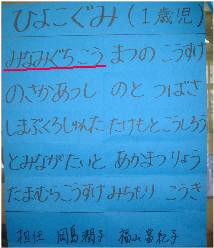 ひよこぐみ (1歳児)
みなみぐちこう まつの こうすけ
のさかあつし のと つばさ
しまぶくろしゅんた たけもとこうしろう
とみながたいと あかまつりょう
たまむらこうすけ みちもり こうき
担任 岡島潤子 福山昌紀子